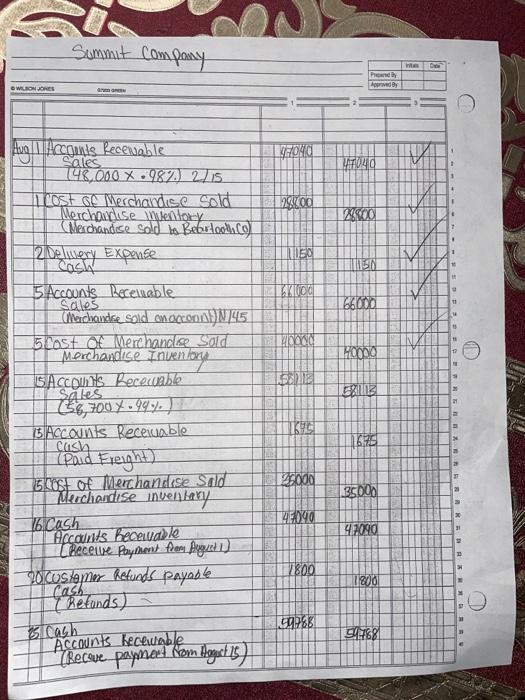 Summit Company
Initials Date
Prepared By
Approved By
© WILSON JONES G7203 GREEN
1 2 3
Aug 1 Accounts Receivable 47040
Sales 47040
(48,000 X .98%) 2/15
1 Cost of Merchandise Sold 28800
Merchandise inventory 28800
(Merchandise sold to Beartooth Co)
2 Delivery Expense 1150
Cash 1150
5 Accounts Receivable 66000
Sales 66000
(Merchandise sold on account) N/45
5 Cost Of Merchandise Sold 40000
Merchandise Inventory 40000
15 Accounts Receivable 58113
Sales 58113
(58,700 X .99%)
15 Accounts Receivable 1675
Cash 1675
(Paid Freight)
15 Cost of Merchandise Sold 35000
Merchandise inventory 35000
16 Cash 47040
Accounts Receivable 47040
(Receive Payment from August 1)
20 Customer Refunds payable 1800
Cash 1800
(Refunds)
25 Cash 59788
Accounts Receivable 59788
(Receive payment from August 15)